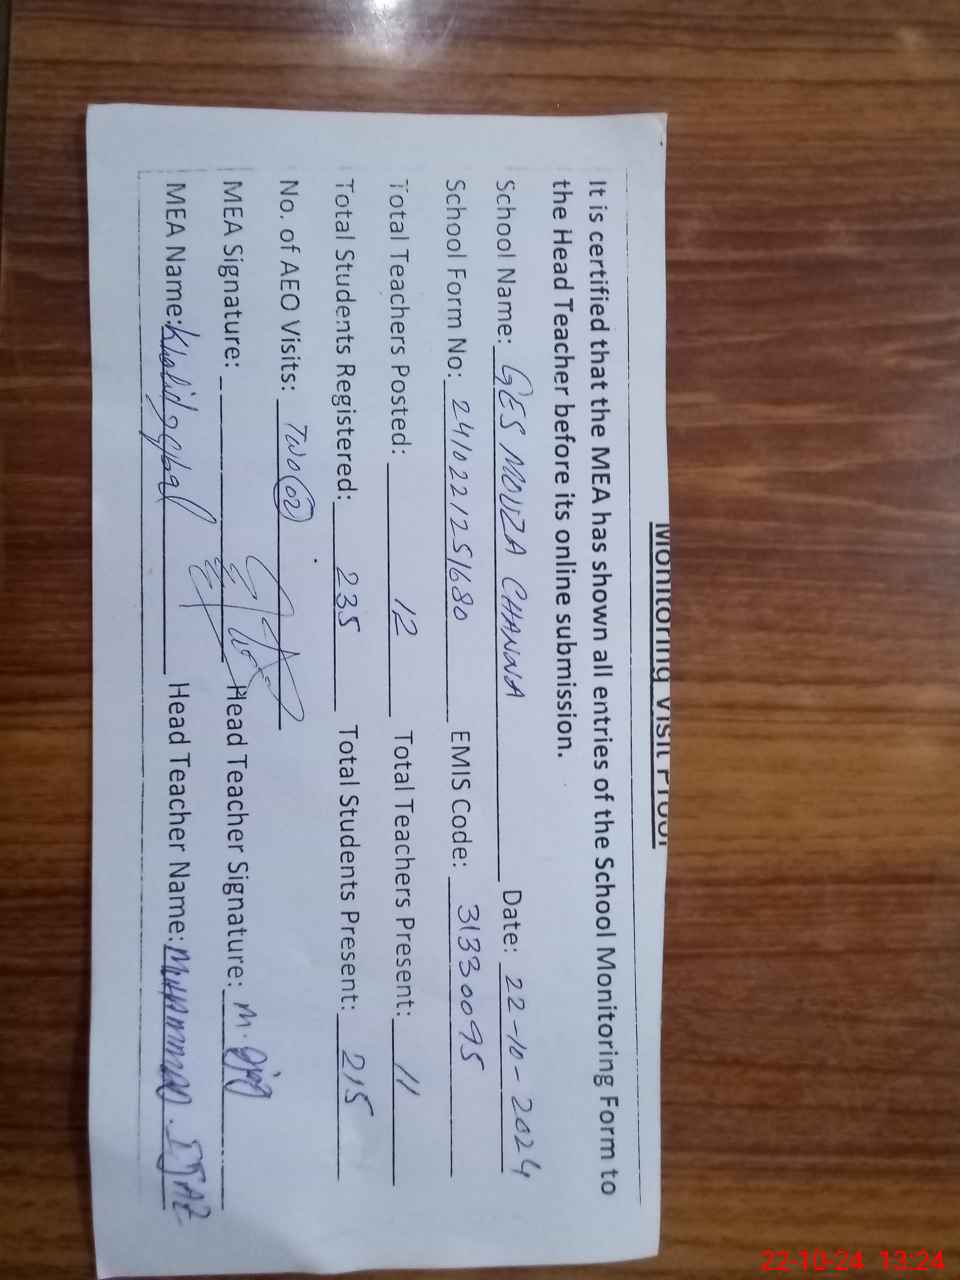 Monitoring Visit Proof
It is certified that the MEA has shown all entries of the School Monitoring Form to
the Head Teacher before its online submission.
School Name: GES MOUZA CHANNA Date: 22-10-2024
School Form No: 2410221251680 EMIS Code: 31330095
Total Teachers Posted: 12 Total Teachers Present: 11
Total Students Registered: 235 Total Students Present: 215
No. of AEO Visits: TWO (02)
MEA Signature: Head Teacher Signature: M. Ijaz
MEA Name: Khalid Iqbal Head Teacher Name: MUHAMMAD. IJAZ
22-10-24 13:24